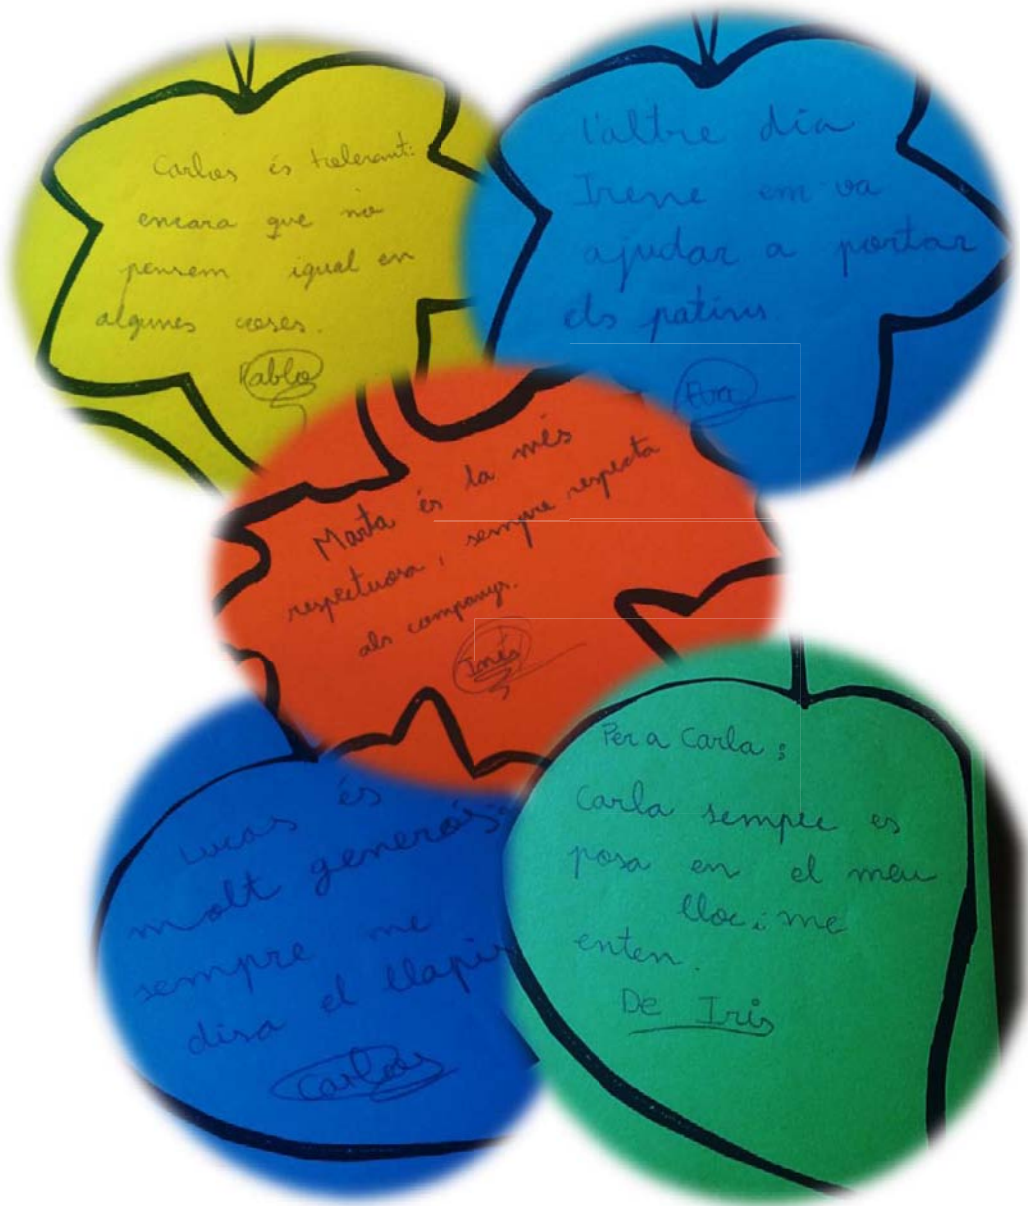 Carlos és tolerant:
encara que no
pensem igual en
algunes coses.
Pablo
L'altre dia
Irene em va
ajudar a portar
els patins
Marta és la més
respectuosa, sempre respecta
als companys.
Inés
Lucas és
molt generós:
sempre me
dixa el llapis
Carlos
Per a Carla:
Carla sempre es
posa en el meu
lloc i me
enten.
De Iris